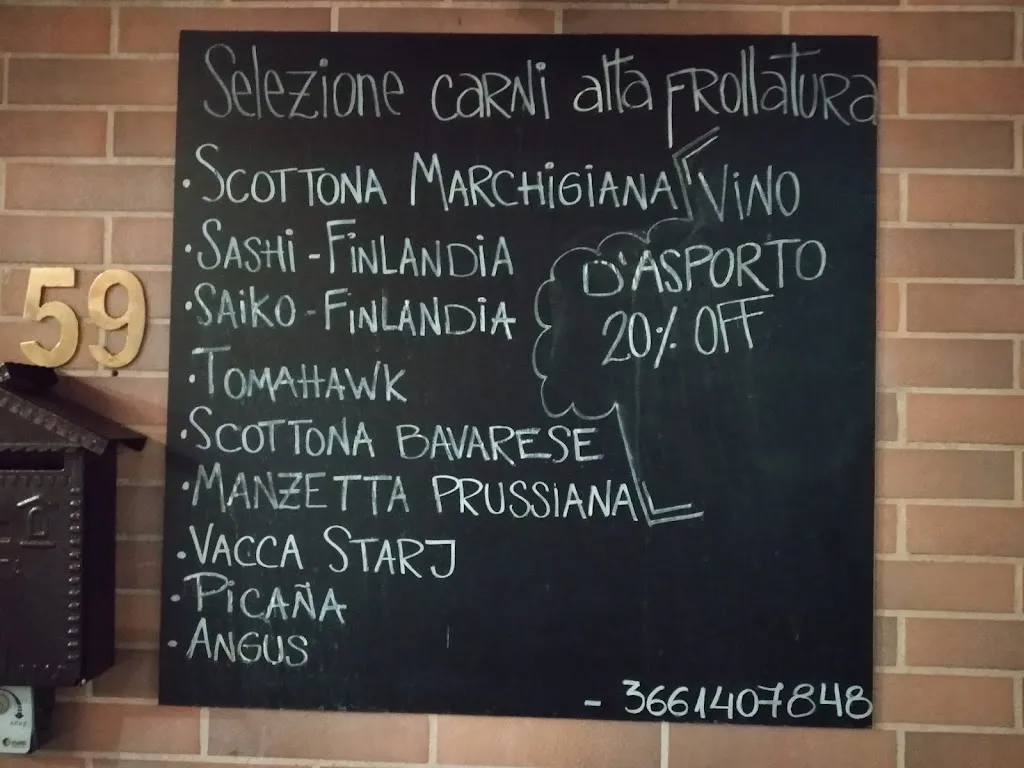 Selezione carni alta frollatura
• SCOTTONA MARCHIGIANA
• SASHI - FINLANDIA
• SAIKO - FINLANDIA
• TOMAHAWK
• SCOTTONA BAVARESE
• MANZETTA PRUSSIANA
• VACCA STARJ
• PICAÑA
• ANGUS
VINO
D'ASPORTO
20% OFF
- 3661407848
59